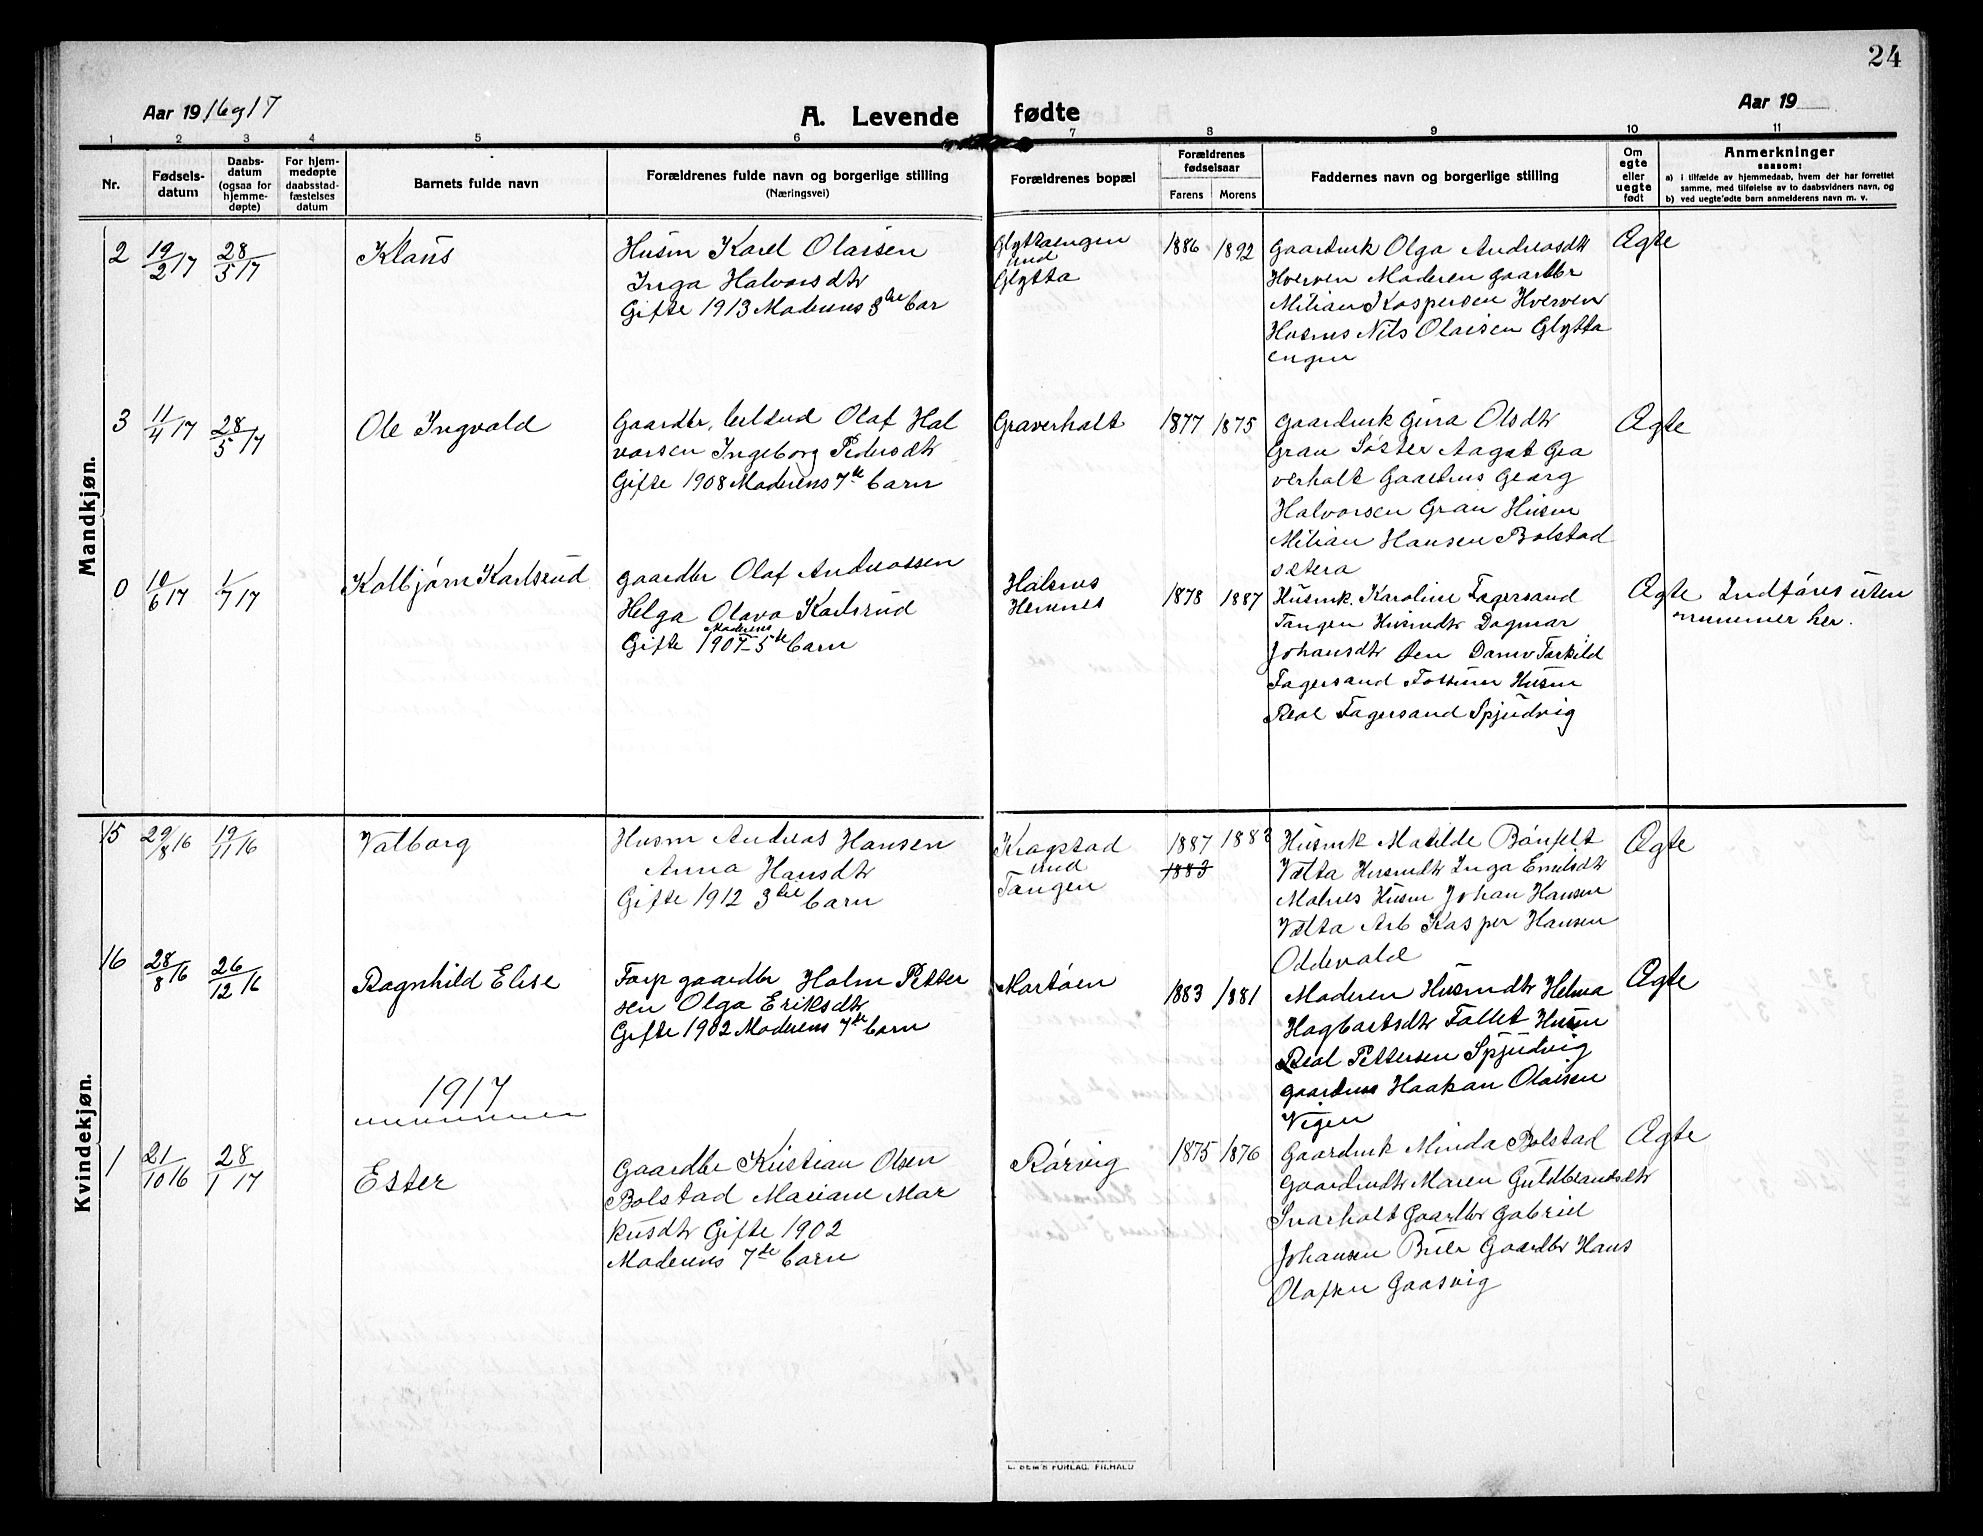 24
Aar 1916 og 17
A. Levende fødte
Aar 19
1 2 3 4 5 6 7 8 9 10 11
Nr.
Fødsels-
datum
Daabs-
datum
(ogsaa for
hjemme-
døpte)
For hjem-
medøpte
daabsstad-
fæstelses
datum
Barnets fulde navn
Forældrenes fulde navn og borgerlige stilling
(Næringsvei)
Forældrenes bopæl
Forældrenes
fødselsaar
Farens Morens
Faddernes navn og borgerlige stilling
Om
egte
eller
uegte
født
Anmerkninger
saasom:
a) i tilfælde av hjemmedaab, hvem det har forrettet
samme, med tilføielse av to daabsvidners navn, og
b) ved uegtefødte barn anmelderens navn m. v.
Mandkjøn.
2 19/2 17 28/5 17 Klaus
Husm Karel Olaisen
Inga Halvorsdtr
Gifte 1913 Moderens 3die Barn
Glyttaengen
und
Glytta
1886 1892
Gaardmk Olga Andreasdtr
Hverven Moderen Gaardbr
Milian Kaspersen Hverven
Husms Nils Olaisen Glytta
engen
Ægte
3 11/4 17 28/5 17 Ole Ingvald
Gaardbr, Olaf Hal
vorsen Ingeborg Pedersdtr
Gifte 1908 Moderens 7de Barn
Graverholt
1877 1875
Gaardmk Gina Olsdtr
Gran Søster Aagat Gra
verholt Gaardms Georg
Halvorsen Gran Husm
Milian Hansen Bolstad
sætera
Ægte
0 10/6 17 1/7 17 Kolbjørn Karlsrud
Gaardbr Olaf Andreassen
Helga Olava Karlsrud
Moderens
Gifte 1907 - 5te Barn
Halsnes
Hennes
1878 1887
Husmk. Karoline Fagersand
Tangen Husmdtr Dagmar
Johansdtr Øen Torkild
Fagersand Fossum Husm
Real Fagersand Spjudvig
Ægte
Indføres uten
nummer her.
Kvindekjøn.
15 29/8 16 19/11 16 Valborg
Husm Andreas Hansen
Anna Hansdtr
Gifte 1912 3die Barn
Kragstad
und
Tangen
1887 1883
1883
Husmk Matilde Bønfelt
Vælta Husmdtr Inga Emilsdtr
Malnes Husm Johan Hansen
Vælta Arb Kasper Hansen
Oddevald
Ægte
16 28/8 16 26/12 16 Ragnhild Elise
Forp gaardbr Holm Petter
sen Olga Eriksdtr
Gifte 1902 Moderens 7de Barn
Martoen
1883 1881
Moderen Husmdtr Helma
Hagbartsdtr Follet Husm
Real Pettersen Spjudvig
Gaardms Haakon Olaisen
Vigen
Ægte
1917
1 21/10 16 28/1 17 Ester
Gaardbr Kristian Olsen
Bolstad Mariane Mar
kusdtr Gifte 1902
Moderens 7de Barn
Rørvig
1875 1876
Gaardmk Minda Bolstad
Gaardmdtr Maren Guldbrandsdtr
Svarholt Gaardbr Gabriel
Johansen Buer Gaardbr Hans
Olafsen Gaasvig
Ægte
E. SEM'S FORLAG, FR.HALD